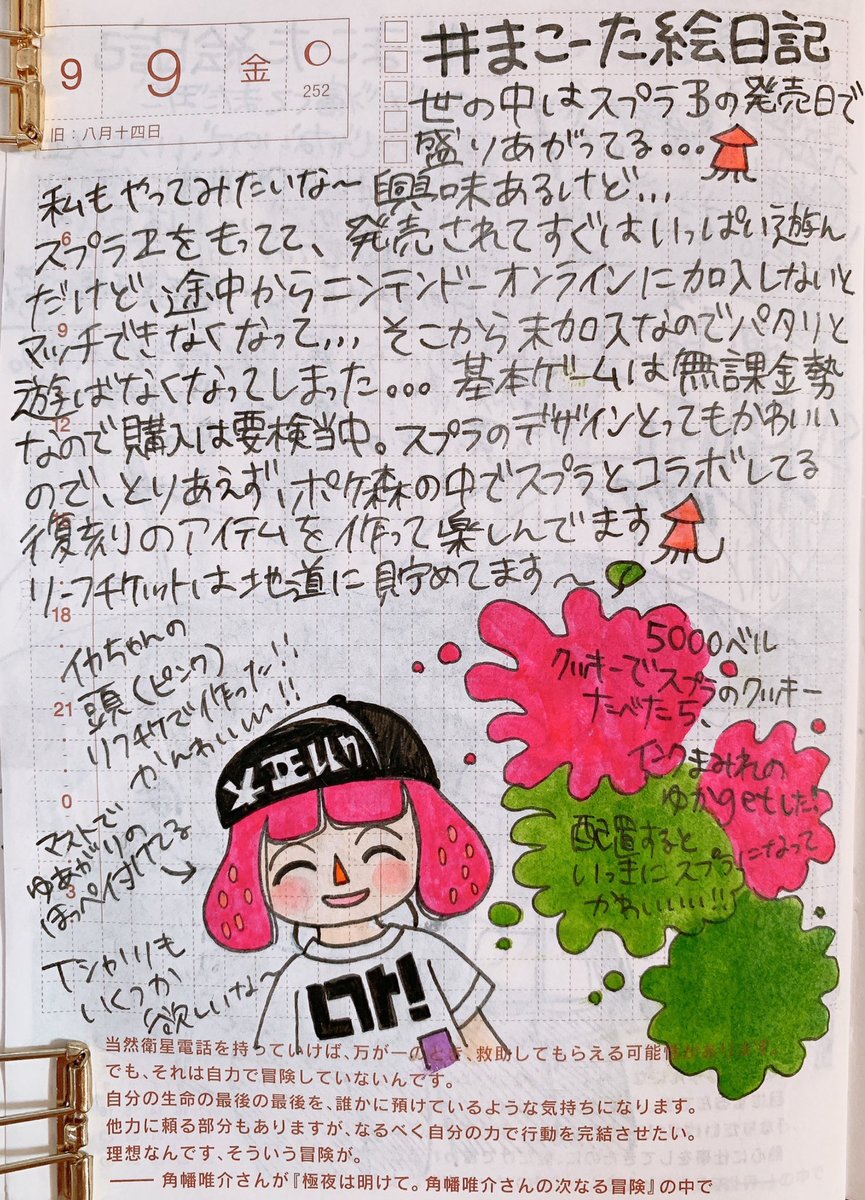 9
9
金
252
旧：八月十四日
#まこーた絵日記
世の中はスプラ3の発売日で
盛りあがってる...
私もやってみたいな〜興味あるけど...
スプラ2をもってて、発売されてすぐはいっぱい遊ん
だけど、途中からニンテンドーオンラインに加入しないと
マッチできなくなって... そこから未加入なのでパタリと
遊ばなくなってしまった... 基本ゲームは無課金勢
なので購入は要検当中。スプラのデザインとってもかわいい
ので、とりあえず、ポケ森の中でスプラとコラボしてる
復刻のアイテムを作って楽しんでます
リーフチケットは地道に貯めてます〜
6
9
12
18
21
0
3
イカちゃんの
頭(ピンク)
リフチケで作った!!
かんわいい!!
5000ベル
クッキーでスプラのクッキー
たべたら、
インクまみれの
ゆかgetした!
配置すると
いっきにスプラになって
かわいいい!!
マストで
ゆあがりの
ほっぺ付けてる
Tシャツも
いくつか
欲しいな〜
当然衛星電話を持っていけば、万が一のとき、救助してもらえる可能性が
でも、それは自力で冒険していないんです。
自分の生命の最後の最後を、誰かに預けているような気持ちになります。
他力に頼る部分もありますが、なるべく自分の力で行動を完結させたい。
理想なんです、そういう冒険が。
―― 角幡唯介さんが『極夜は明けて。角幡唯介さんの次なる冒険』の中で